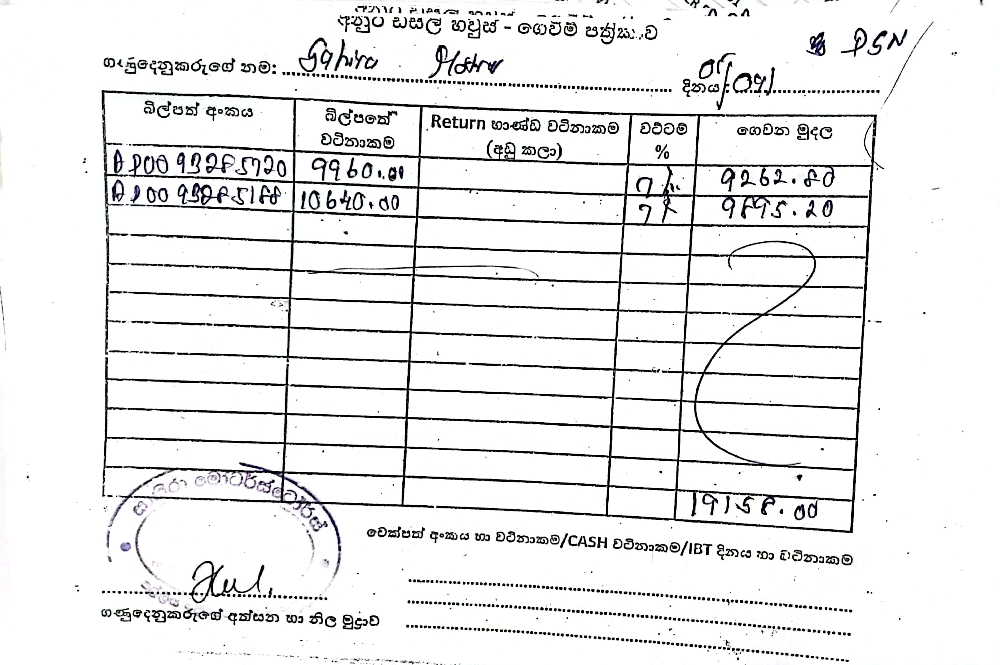 අනුර ඩීසල් හවුස් - ගෙවීම් පත්‍රිකාව
DSN
ගණුදෙනුකරුගේ නම: Sahira Motors
දිනය:
බිල්පත් අංකය බිල්පතේ වටිනාකම Return භාණ්ඩ වටිනාකම (අඩු කලා) වට්ටම % ගෙවන මුදල
9960.00 7% 9262.80
10640.00 7% 9895.20
19158.00
චෙක්පත් අංකය හා වටිනාකම/CASH වටිනාකම/IBT දිනය හා වටිනාකම
සාහිරා මෝටර්ස්ටෝර්ස්
ගණුදෙනුකරුගේ අත්සන හා නිල මුද්‍රාව